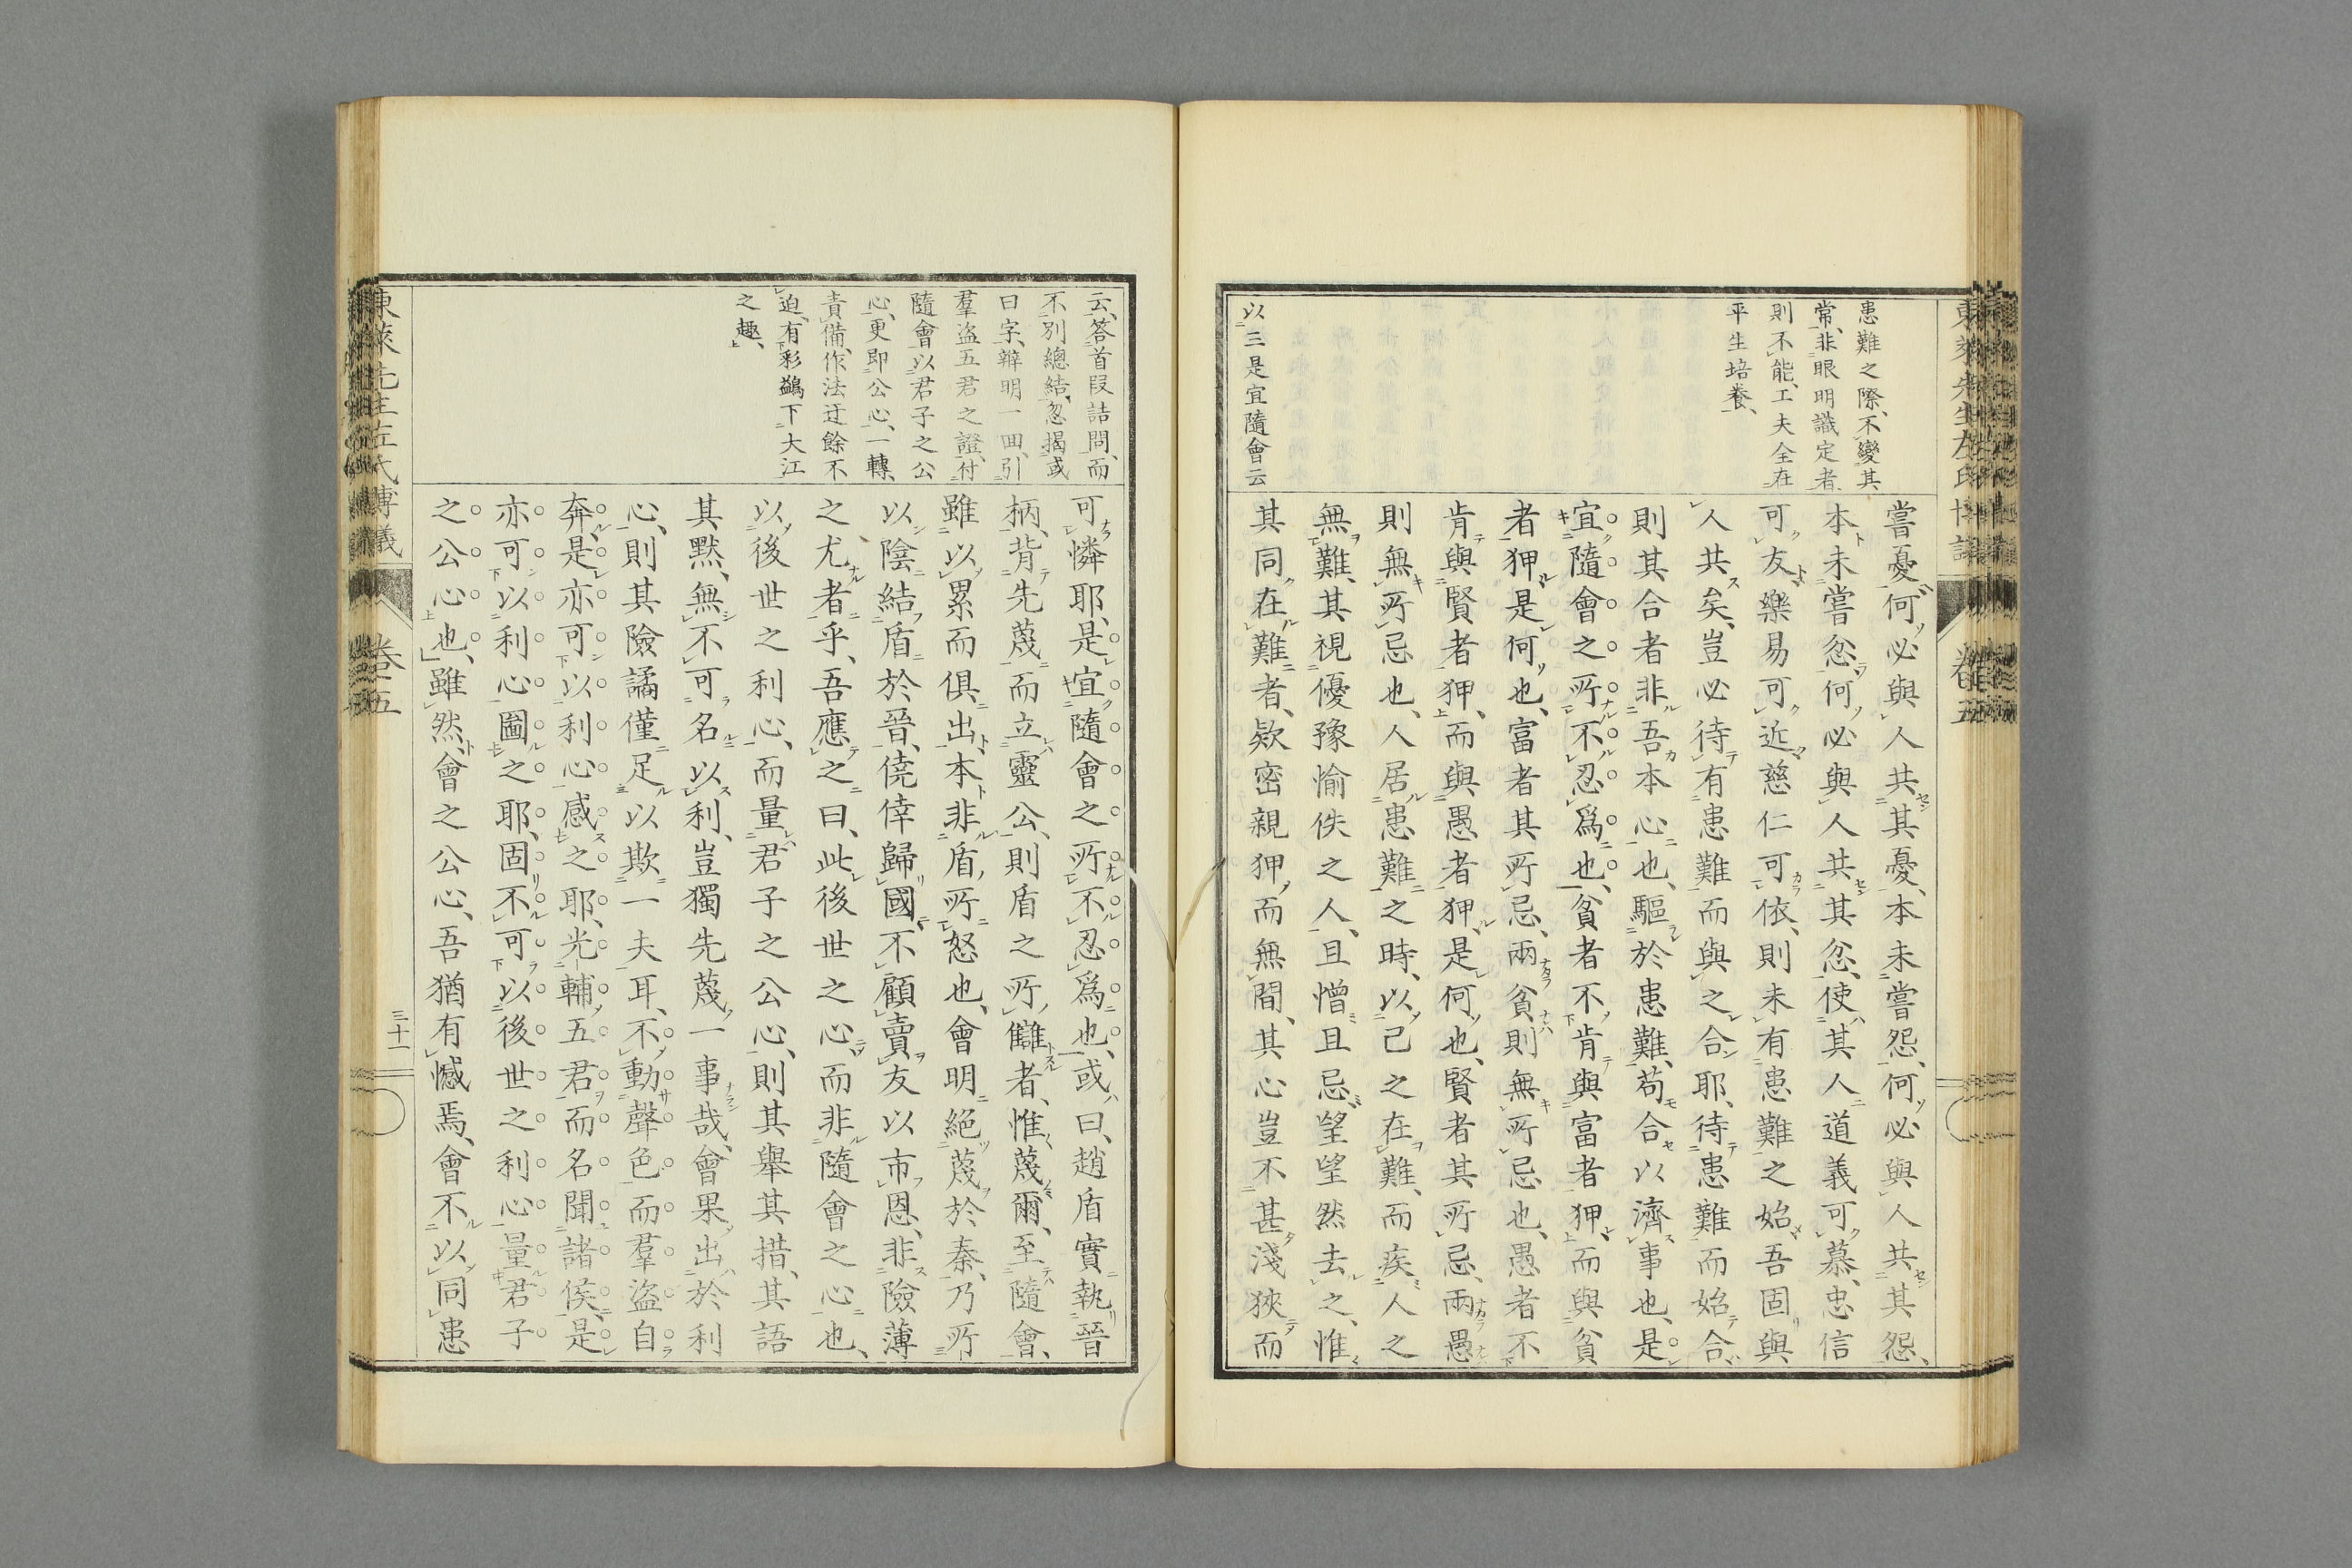 患難之際、不變其
常、非眼明識定者
則不能、工夫全在
平生培養、
以三是宜隨會云
嘗憂、何必與人共其憂、本未嘗怨、何必與人共其怨、
本未嘗忿、何必與人共其忿、使其人道義可慕、忠信
可友、樂易可近、慈仁可依、則未有患難之始、吾固與
人共矣、豈必待有患難而與之合耶、待患難而始合、
則其合者非吾本心也、驅於患難、苟合以濟事也、是
宜隨會之所不忍爲也、貧者不肯與富者狎、而與貧
者狎、是何也、富者其所忌、兩貧則無所忌也、愚者不
肯與賢者狎、而與愚者狎、是何也、賢者其所忌、兩愚
則無所忌也、人居患難之時、以己之在難、而疾人之
無難、其視優豫愉佚之人、且憎且忌、望望然去之、惟
其同在難者、欵密親狎、而無間、其心豈不甚淺狹而
云、答首段詰問、而
不別總結、忽揭或
曰字、辯明一回、引
羣盜五君之證、付
隨會以君子之公
心、更即公心、一轉、
責備、作法迂餘不
迫、有彩鷁下大江
之趣、
可憐耶、是宜隨會之所不忍爲也、或曰、趙盾實執晉
柄、背先蔑而立靈公、則盾之所讎者、惟蔑爾、至隨會、
雖以累而俱出、本非盾所怒也、會明絕蔑於秦、乃所
以陰結盾於晉、僥倖歸國、不顧賣友以市恩、非險薄
之尤者乎、吾應之曰、此後世之心、而非隨會之心也、
以後世之利心、而量君子之公心、則其舉其措、其語
其默、無不可名以利、豈獨先蔑一事哉、會果出於利
心、則其險譎僅足以欺一夫耳、不動聲色、而羣盜自
奔、是亦可以利心感之耶、光輔五君、而名聞諸侯、是
亦可以利心圖之耶、固不可以後世之利心量君子
之公心也、雖然、會之公心、吾猶有憾焉、會不以同患
東萊先生左氏博議
卷之五
三十一